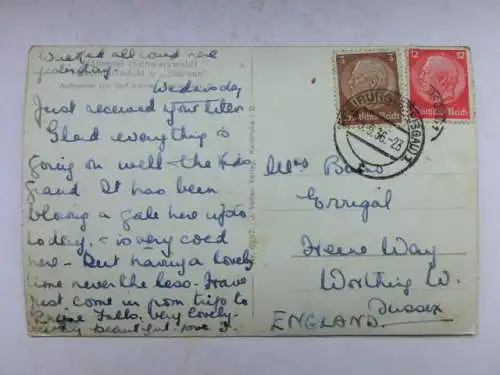 Walked all round here
yesterday.
(Schwarzwald)
Wednesday
Just received your letter
Glad everything is
going on well - the kids
grand. It has been
blowing a gale here up to
today. & is very cold
here - But having a lovely
time never the less. Have
just come in from trip to
Rhine Falls. Very lovely -
very beautiful. love J.
3
Deutsches Reich
12
Deutsches Reich
36-23
Mrs
Errigal
Heene Way
Worthing W.
Sussex
ENGLAND.